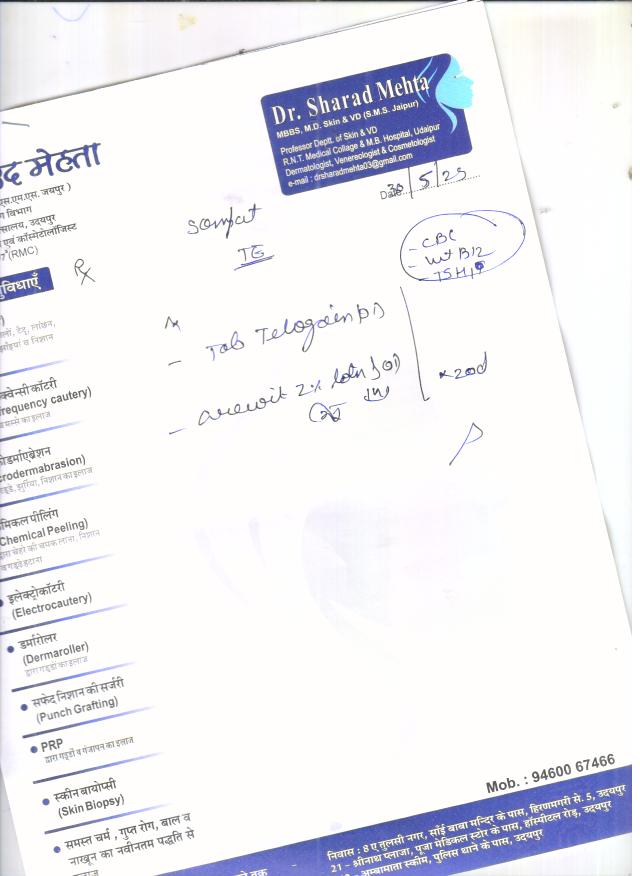 Dr. Sharad Mehta
MBBS, M.D. Skin & VD (S.M.S. Jaipur)
Professor Deptt. of Skin & VD
R.N.T. Medical Collage & M.B. Hospital, Udaipur
Dermatologist, Venereologist & Cosmetologist
e-mail : drsharadmehta03@gmail.com
मेहता
एस.एम.एस. जयपुर )
विभाग
उदयपुर
एवं कॉस्मेटोलॉजिस्ट
(RMC)
Date 30/5/25
TE
- CBC
- vit B12
- TSH
Rx
- Tab Telogain
- 2% lotn
x 20d
requency cautery)
crodermabrasion)
(Chemical Peeling)
• इलेक्ट्रोकॉटरी
(Electrocautery)
• डर्मारोलर
(Dermaroller)
द्वारा गड्डों का इलाज
• सफेद निशान की सर्जरी
(Punch Grafting)
• PRP
द्वारा गड्डों व गंजापन का इलाज
• स्कीन बायोप्सी
(Skin Biopsy)
• समस्त चर्म , गुप्त रोग, बाल व
नाखून का नवीनतम पद्धति से
Mob. : 94600 67466
निवास : 8 ए तुलसी नगर, साँई बाबा मन्दिर के पास, हिरणमगरी से. 5, उदयपुर
21 - श्रीनाथ प्लाजा, पूजा मेडिकल स्टोर के पास, हॉस्पीटल रोड़, उदयपुर
अम्बामाता स्कीम, पुलिस थाने के पास, उदयपुर